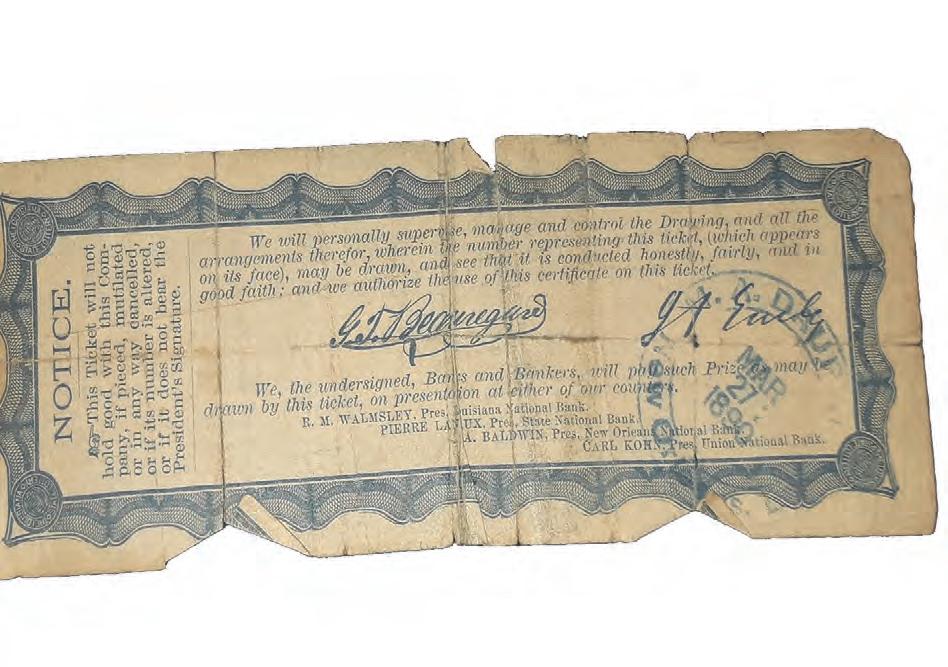 NOTICE.
This Ticket will not
hold good with this Com-
pany, if pieced, mutilated
or in any way cancelled,
or if its number is altered,
or if it does not bear the
President's Signature.
We will personally supervise, manage and control the Drawing, and all the
arrangements therefor, wherein the number representing this ticket, (which appears
on its face), may be drawn, and see that it is conducted honestly, fairly, and in
good faith; and we authorize the use of this certificate on this ticket.
G.T. Beauregard J A Early
We, the undersigned, Banks and Bankers, will pay such Prize as may be
drawn by this ticket, on presentation at either of our counters.
R. M. WALMSLEY, Pres. Louisiana National Bank.
PIERRE LANAUX, Pres. State National Bank.
A. BALDWIN, Pres. New Orleans National Bank.
CARL KOHN, Pres. Union National Bank.
MAR
27